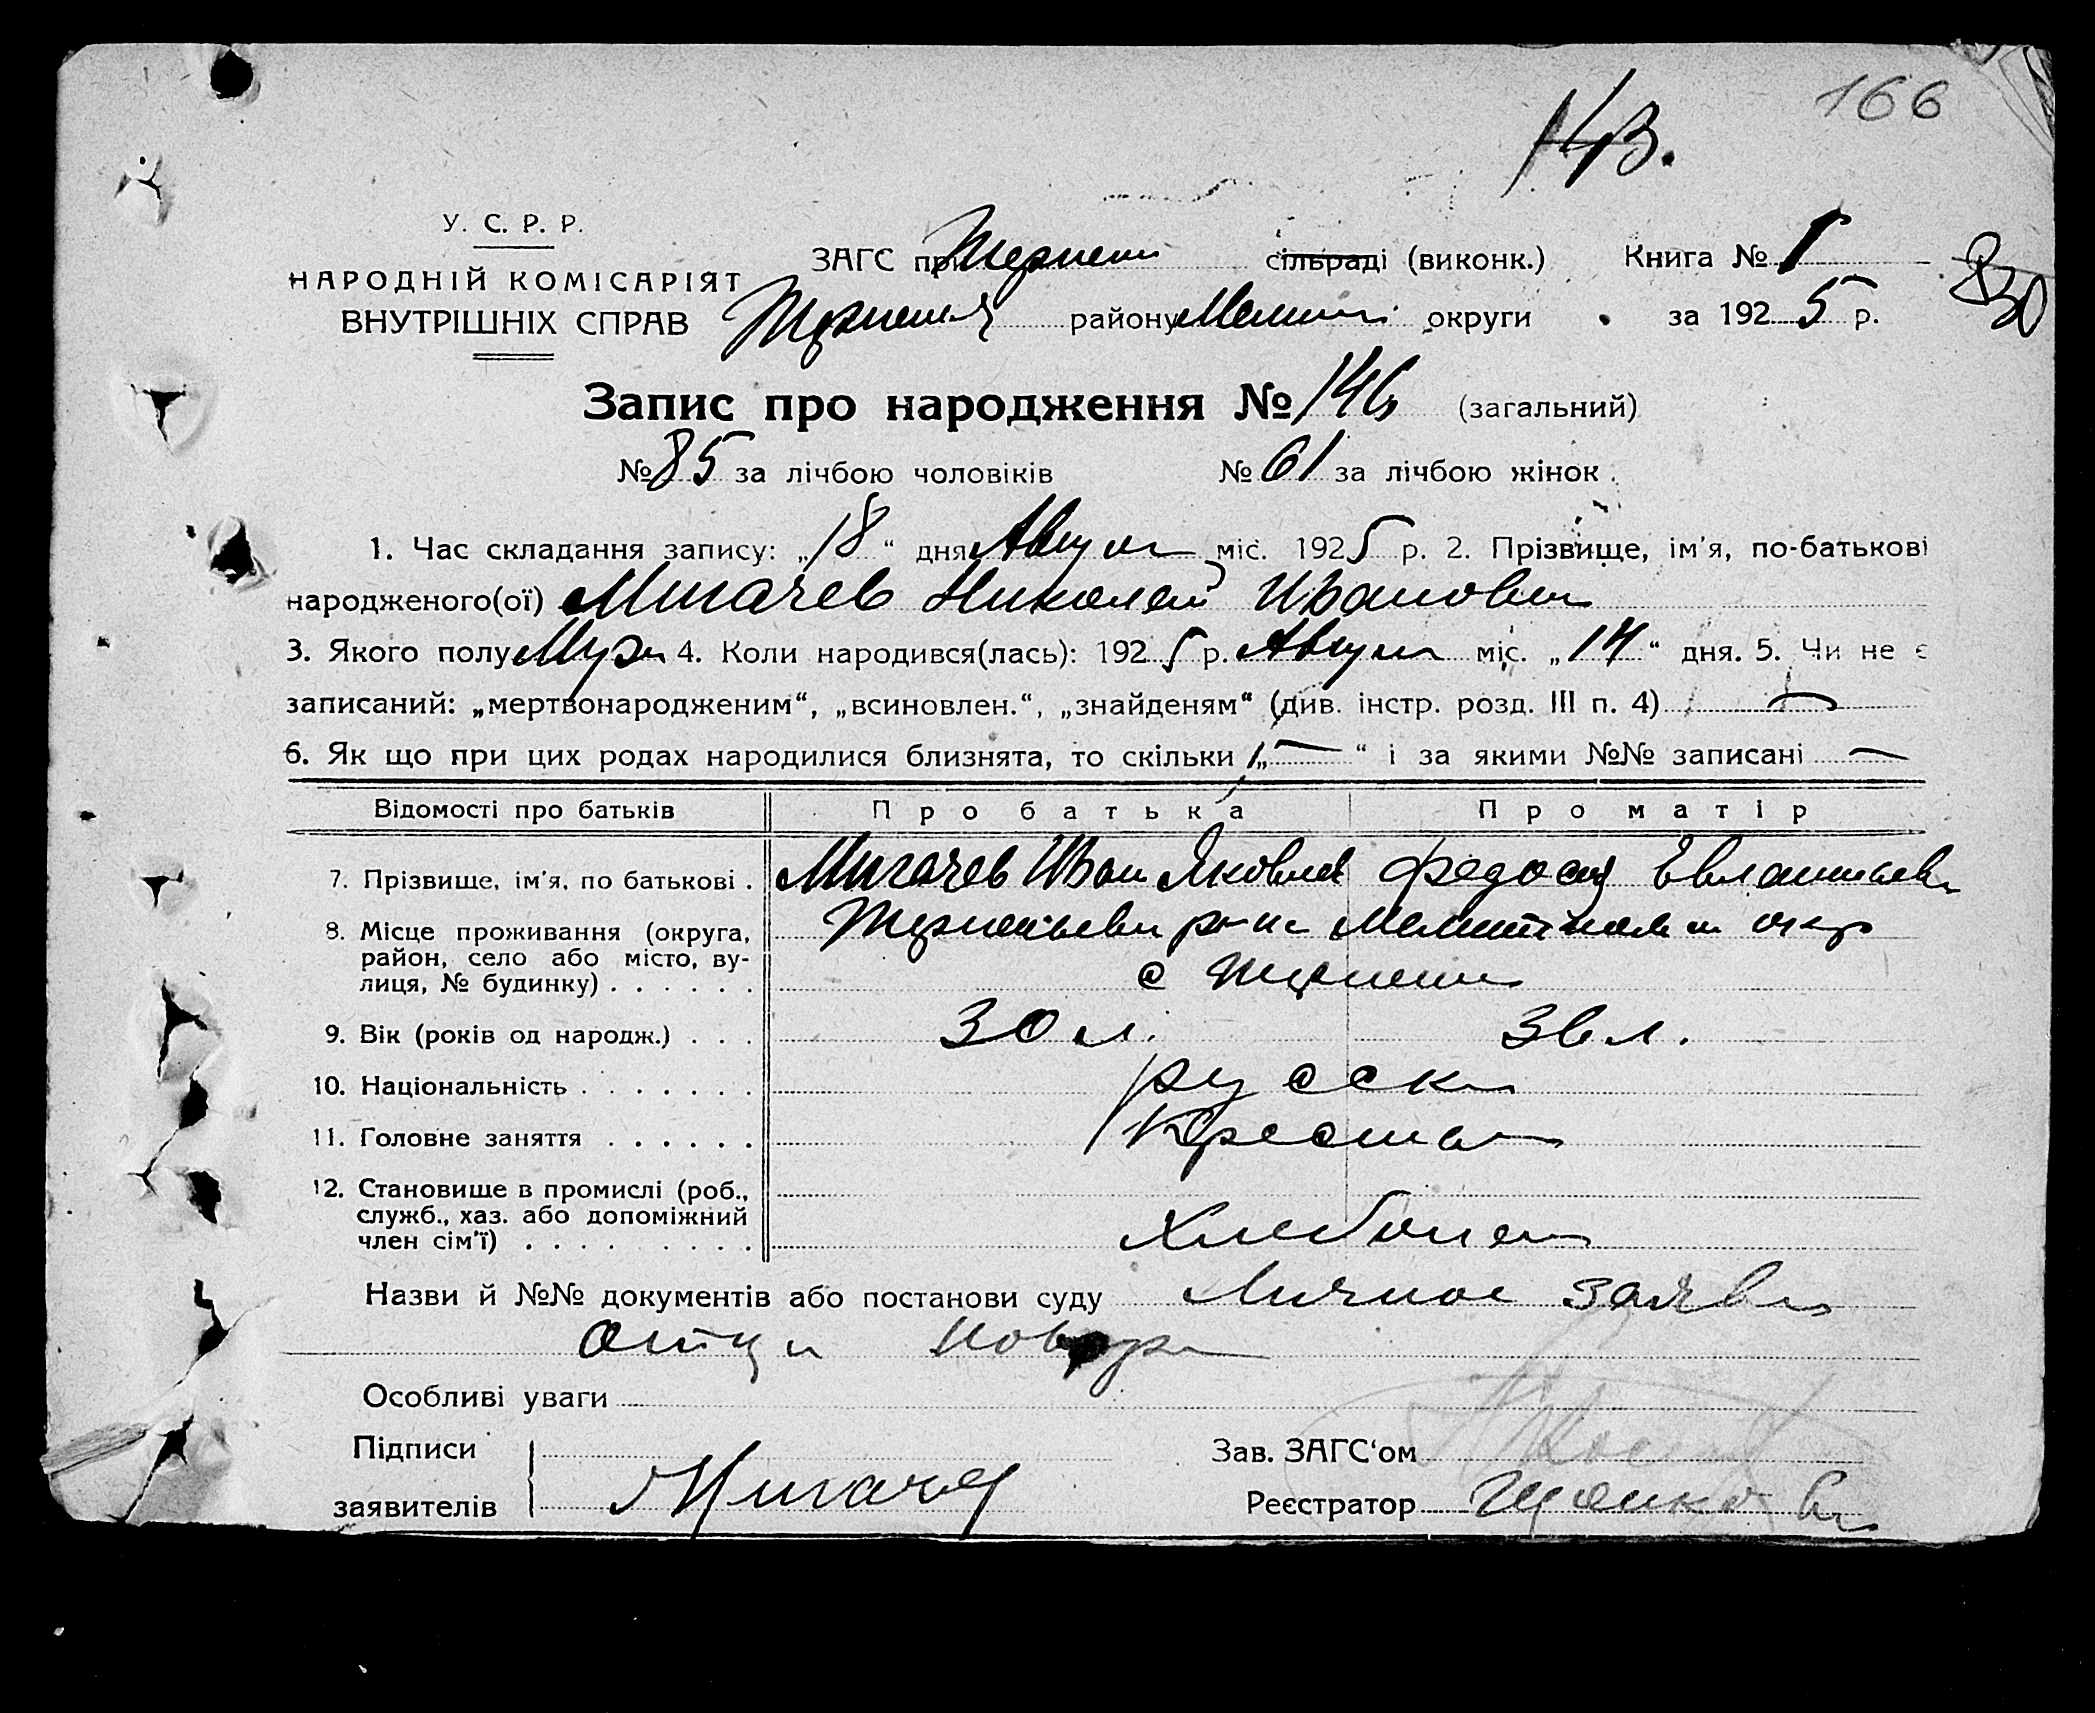 166
143.
У. С. Р. Р.
НАРОДНІЙ КОМІСАРІЯТ
ВНУТРІШНІХ СПРАВ
ЗАГС при сільраді (виконк.) Книга № 1
830
району округи за 1925 р.
Запис про народження № 146 (загальний)
№ 85 за лічбою чоловіків № 61 за лічбою жінок
1. Час складання запису: „18“ дня Август міс. 1925 р. 2. Прізвище, ім'я, по-батькові
народженого(ої) Мигачев Николай Иванович
3. Якого полу Муж 4. Коли народився(лась): 1925 р. Август міс. „14“ дня. 5. Чи не є
записаний: „мертвонародженим“, „всиновлен.“, „знайденям“ (див. інстр. розд. III п. 4) —
6. Як що при цих родах народилися близнята, то скільки „—“ і за якими №№ записані —
Відомості про батьків Про батька Про матір
7. Прізвище, ім'я, по батькові . Мигачев Иван Яковлев Федосия Евлампиевн
8. Місце проживання (округа,
район, село або місто, ву-
лиця, № будинку) . . . . . .
9. Вік (років од народж.) . . . 30 л. 36 л.
10. Національність . . . . . . . русск
11. Головне заняття . . . . . . Крестьян
12. Становище в промислі (роб.,
служб., хаз. або допоміжний
член сім'ї) . . . . . . . . . Хлебопаш
Назви й №№ документів або постанови суду Личное заявл
Отца
Особливі уваги
Підписи
заявителів Мигачев
Зав. ЗАГС'ом
Реєстратор